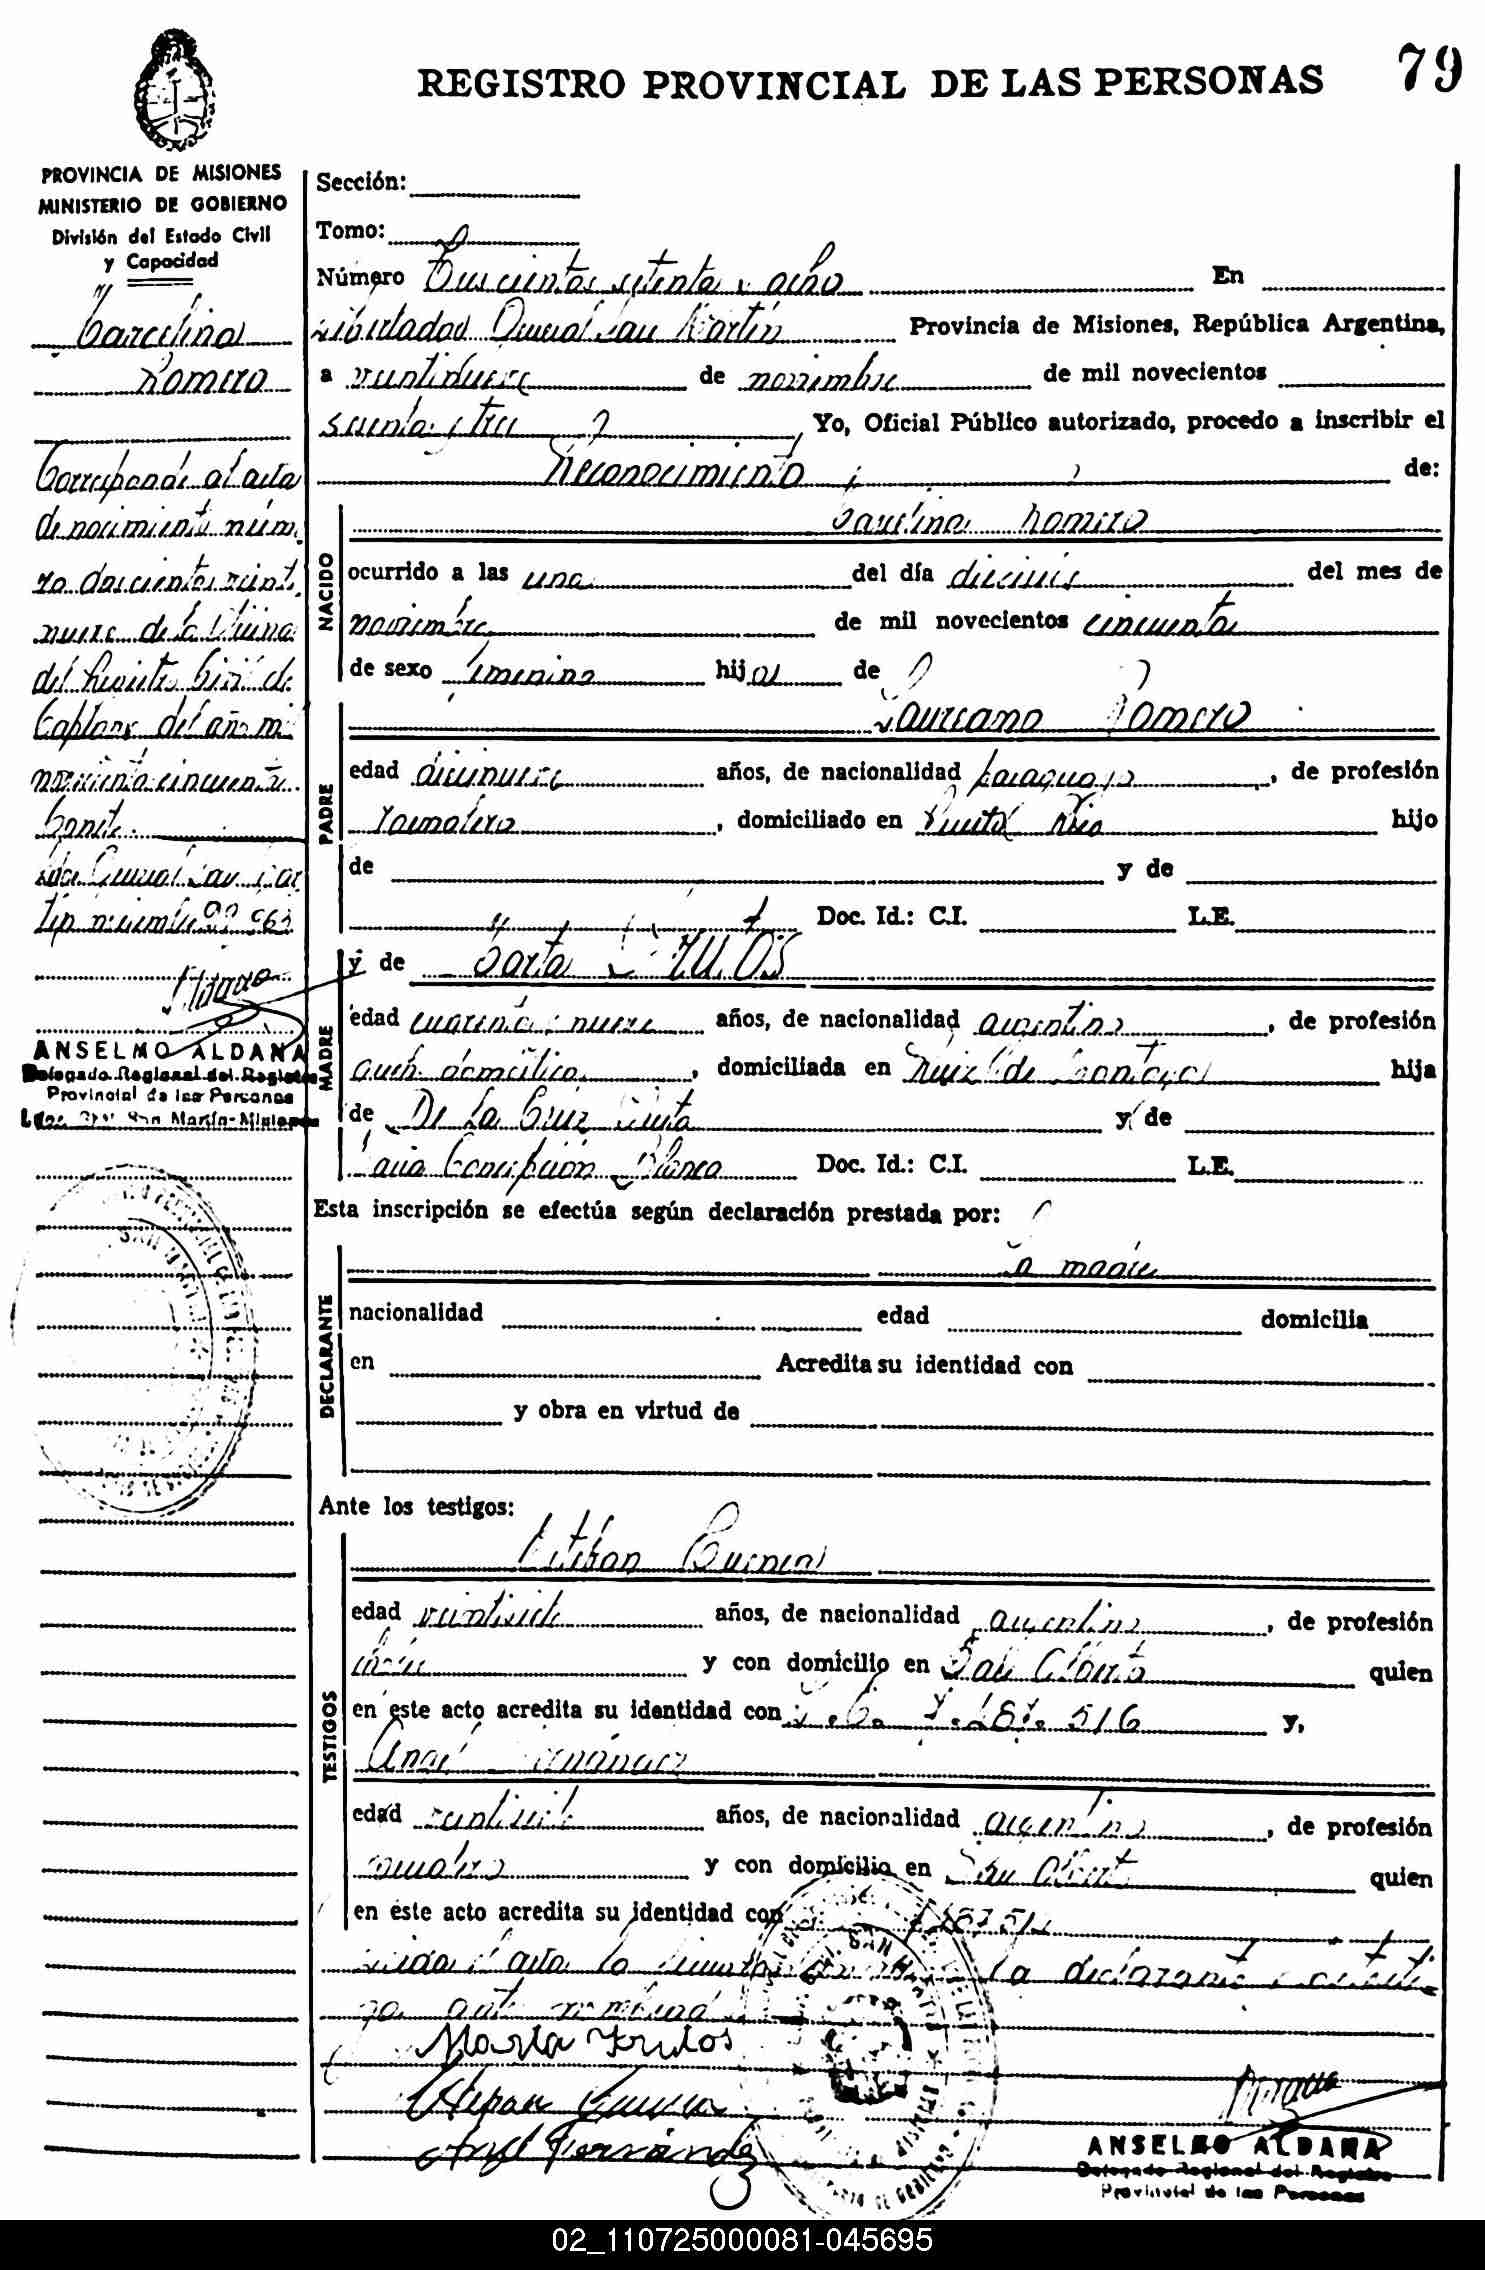 79
REGISTRO PROVINCIAL DE LAS PERSONAS
PROVINCIA DE MISIONES
MINISTERIO DE GOBIERNO
División del Estado Civil
y Capacidad
Marcelina
Romero
Corresponde al acta
de nacimiento núme
ro doscientos veinti
nueve de la Oficina
del Registro Civil de
del año mil
novecientos cincuenta
Conste.
Ldor. General San Mar
tín noviembre 29 963
ANSELMO ALDANA
Delegado Regional del Registro
Provincial de las Personas
Ldor. Gral. San Martín-Misiones
Sección:
Tomo:
Número Doscientos setenta y ocho En
Libertador General San Martín Provincia de Misiones, República Argentina,
a veintinueve de noviembre de mil novecientos
sesenta y tres Yo, Oficial Público autorizado, procedo a inscribir el
Reconocimiento de:
NACIDO
Marcelina Romero
ocurrido a las una del día dieciseis del mes de
noviembre de mil novecientos cincuenta
de sexo femenino hija de
PADRE
Laureano Romero
edad diecinueve años, de nacionalidad paraguayo, de profesión
, domiciliado en Puerto Rico hijo
de y de
Doc. Id.: C.I. L.E.
MADRE
y de Marta FRUTOS
edad cuarenta y nueve años, de nacionalidad argentina, de profesión
queh. domésticos, domiciliada en Ruiz de Montoya hija
de De La Cruz y de
María Concepción Blanco Doc. Id.: C.I. L.E.
Esta inscripción se efectúa según declaración prestada por:
DECLARANTE
La madre
nacionalidad edad domicilia
en Acredita su identidad con
y obra en virtud de
Ante los testigos:
TESTIGOS
Esteban Cuenca
edad veintisiete años, de nacionalidad argentino, de profesión
y con domicilio en San Alberto quien
en este acto acredita su identidad con 516 y,
Angel Fernández
edad veintisiete años, de nacionalidad argentino, de profesión
y con domicilio en San Alberto quien
en este acto acredita su identidad con
Leida el acta la firman la declarante y testi
gos ante nombrados
Marta Frutos
Esteban Cuenca
Angel Fernández
ANSELMO ALDANA
Delegado Regional del Registro
Provincial de las Personas
02_110725000081-045695